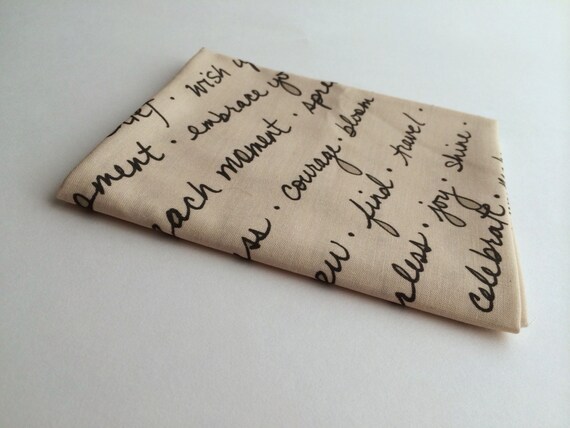 wish
ment · embrace yo
each moment · spre
ss · courage · bloom
ew · find · travel ·
less · joy · shine ·
celebrate ·